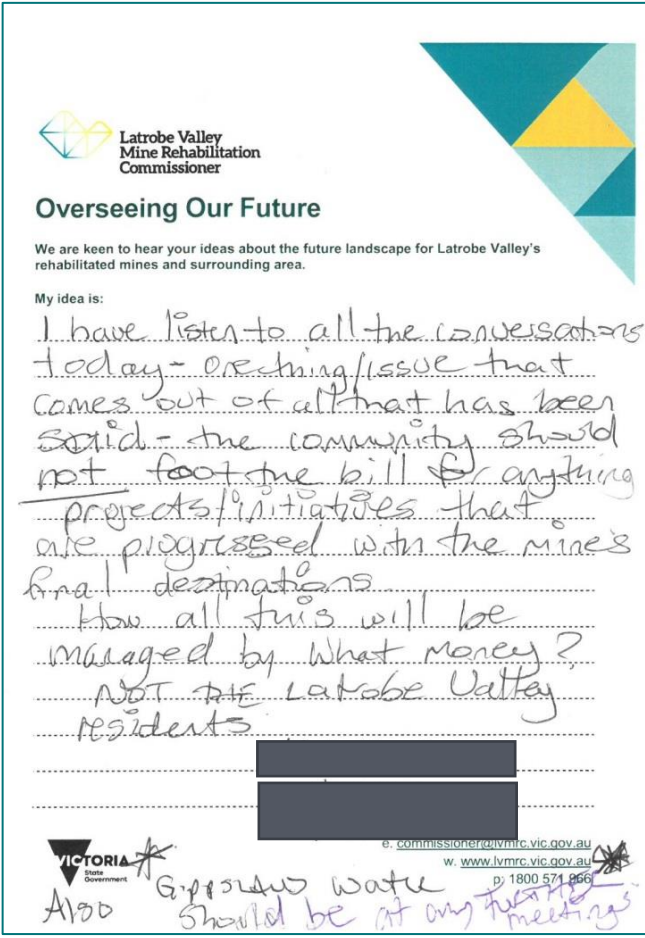 Latrobe Valley
Mine Rehabilitation
Commissioner
Overseeing Our Future
We are keen to hear your ideas about the future landscape for Latrobe Valley's
rehabilitated mines and surrounding area.
My idea is:
I have listen to all the conversations
today - one thing/issue that
comes out of all that has been
said - the community should
not foot the bill for anything
projects/initiatives that
are progressed with the mine's
final destinations
How all this will be
managed by What Money?
NOT THE Latrobe Valley
residents
e. commissioner@lvmrc.vic.gov.au
w. www.lvmrc.vic.gov.au
p: 1800 571 966
VICTORIA
State
Government
Also Gippsland Water
should be at any further
meetings